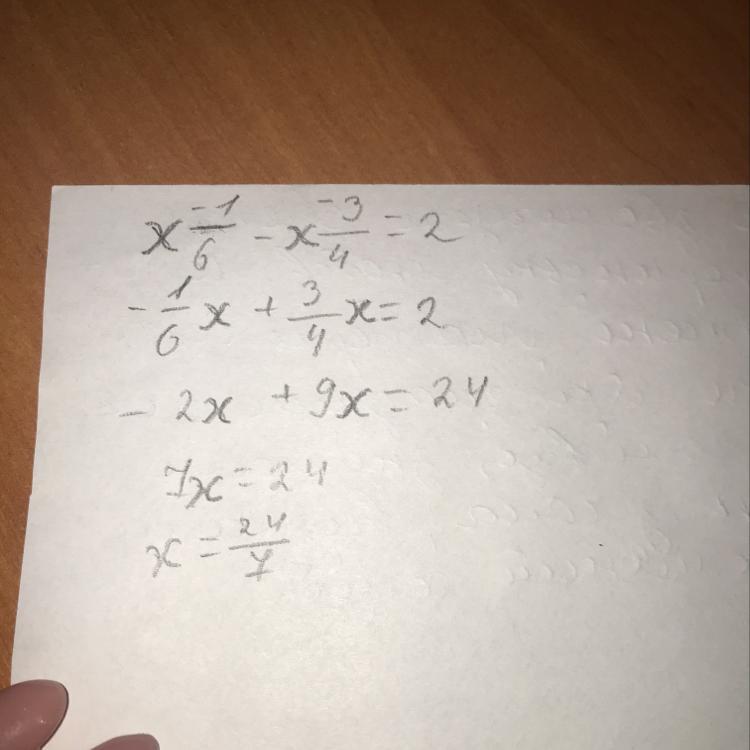 x -1/6 - x -3/4 = 2
- 1/6 x + 3/4 x = 2
- 2x + 9x = 24
7x = 24
x = 24/7